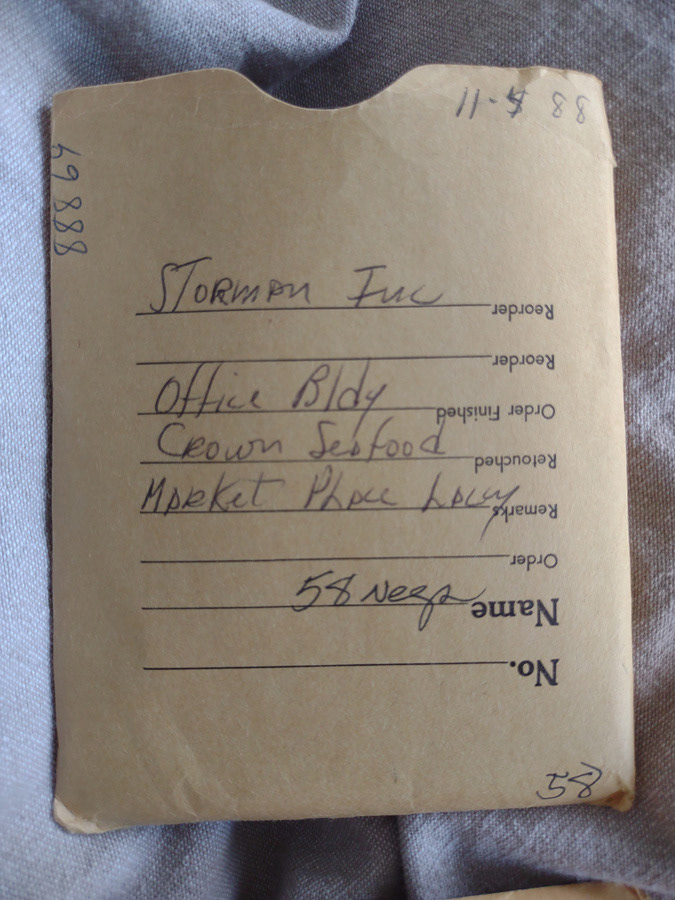 11-4 88
69888
STORMAN INC
Reorder
Reorder
Office Bldg
Order Finished
Crown Seafood
Retouched
Market Place Lacey
Remarks
Order
58 Negs
Name
No.
58